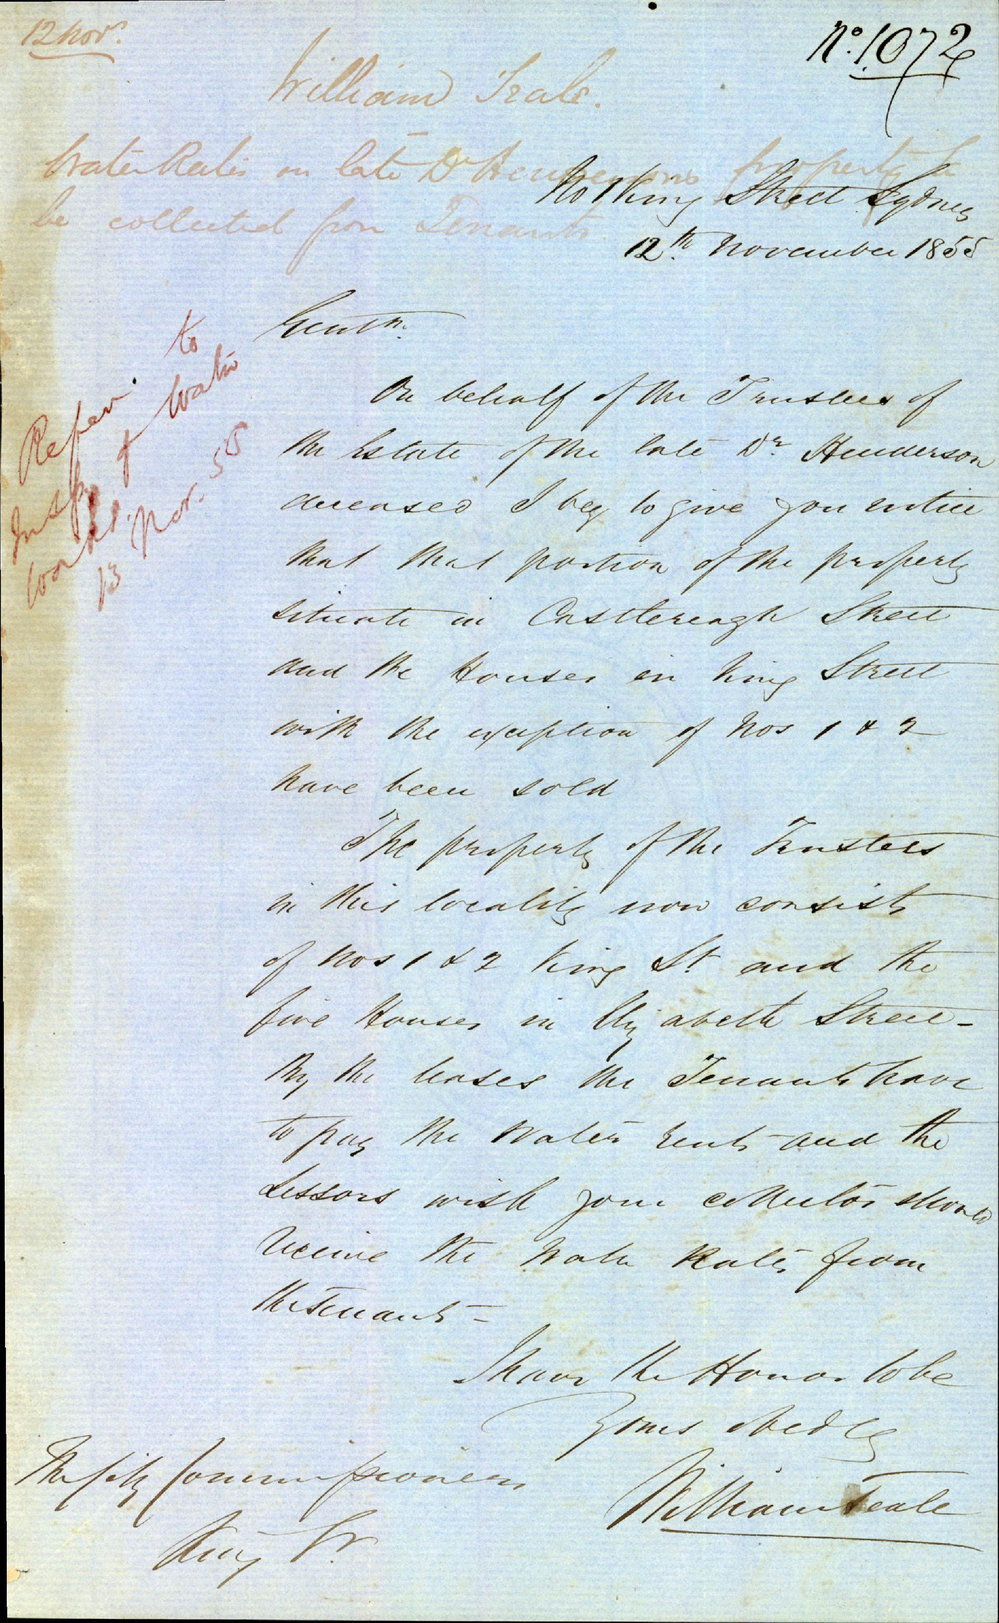 12 Novr.
No. 1072
William Teale.
Water Rates on late Dr Hendersons property to
be collected from Tenants
No 1 King Street Sydney
12th. November 1855
Gentn.
Refer to
Insp. of Water
Works.
13 Nov. 55
On behalf of the Trustees of
the Estate of the late Dr Henderson
deceased I beg to give you notice
that that portion of the property
situate in Castlereagh Street
and the Houses in King Street
with the exception of Nos 1 & 2
have been sold
The property of the Trustees
in this locality now consists
of Nos 1 & 2 King St and the
five Houses in Elizabeth Street -
By the leases the Tenants have
to pay the Water rents and the
Lessors wish your collector should
receive the Water Rates from
the Tenants -
I have the Honor to be
Yours obedly
William Teale
The City Commissioners
King St.